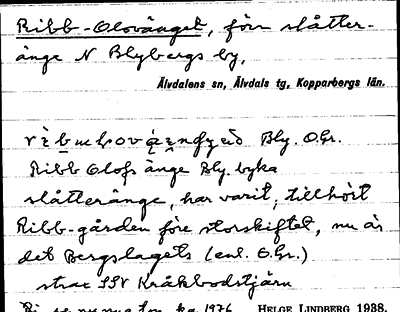 Ribb-Olovänget, förr slåtter-
änge N Blybergs by,
Älvdalens sn, Älvdals tg, Kopparbergs län.
Bly. O.Gr.
Ribb Olofs änge Bly. byka
slåtteränge, har varit, tillhört
Ribb-gården före storskiftet, nu är
det Bergslagets (enl. O.Gr.)
strax SSV Kråkbodstjärn
ka 1976 HELGE LINDBERG 1938.